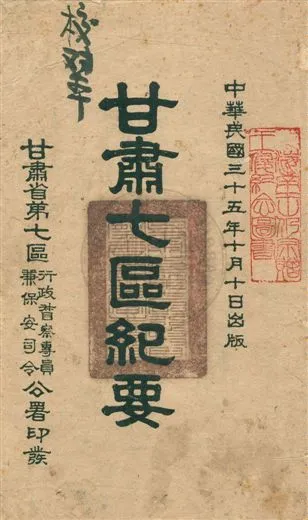 中華民國三十五年十月十日出版
甘肅七區紀要
甘肅省第七區行政督察專員兼保安司令公署印發